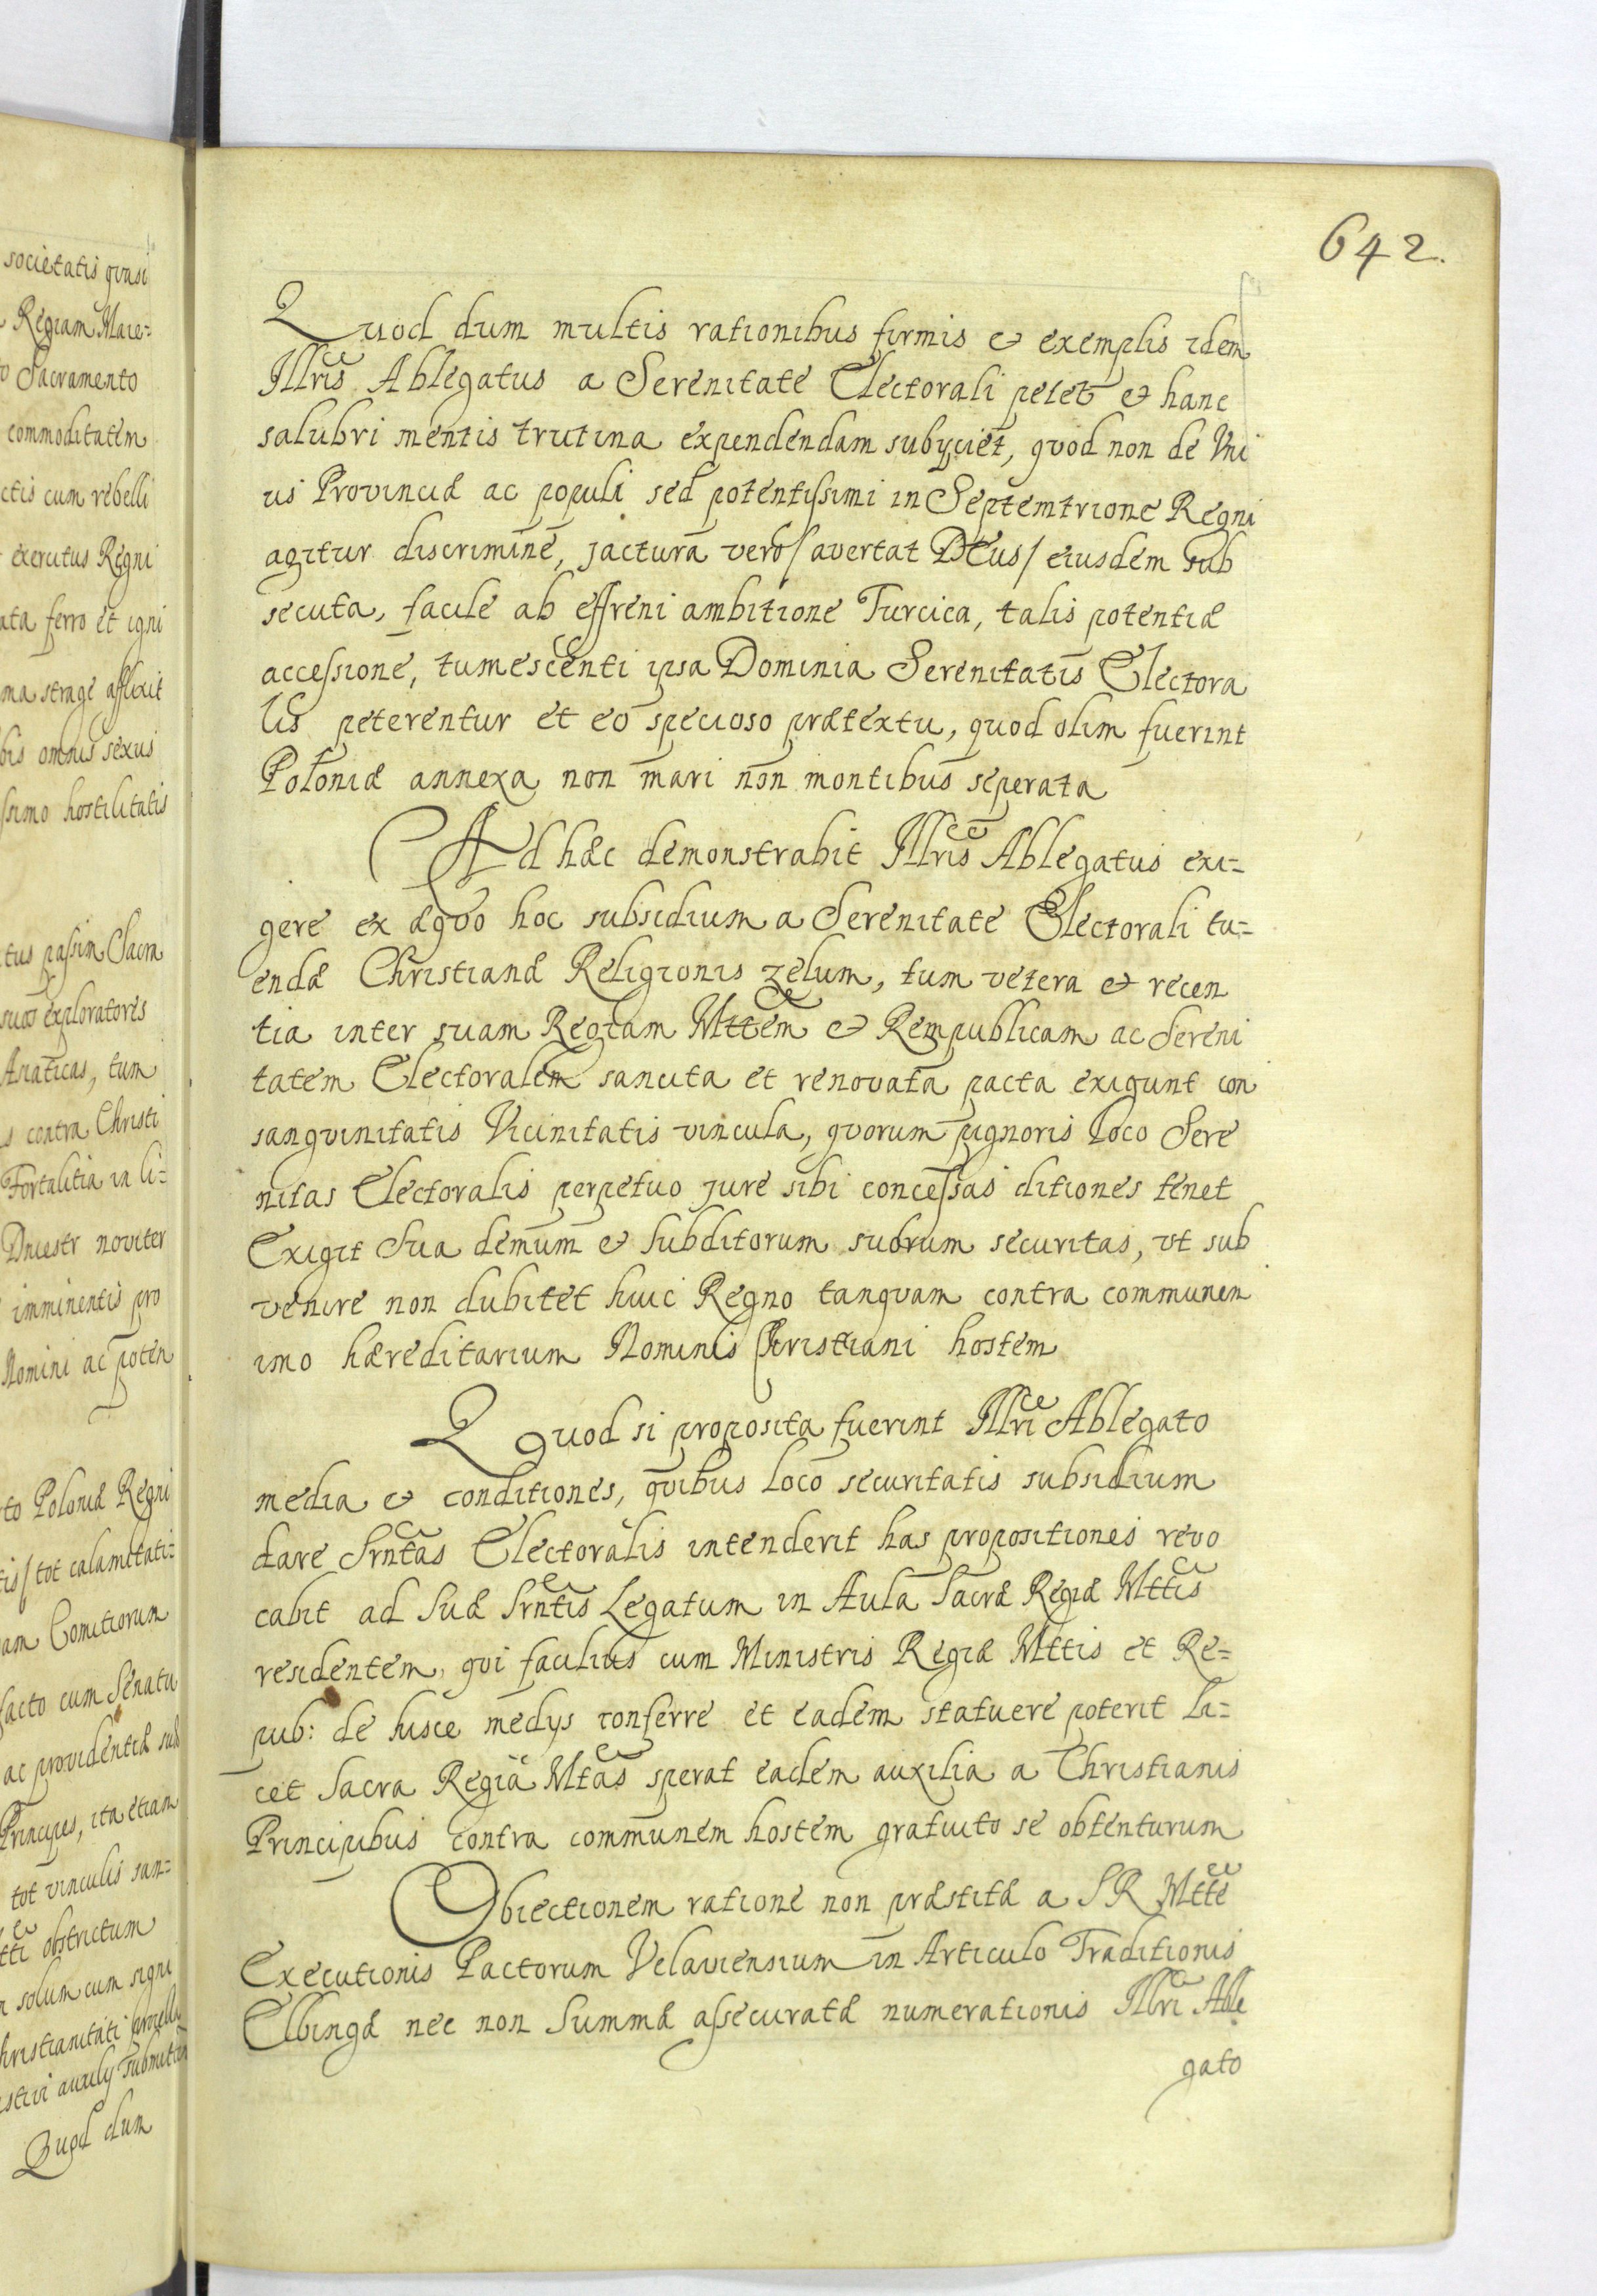 societatis quasi
Regiam Maie=
Sacramento
commoditatem
ctis cum rebelli
exercitus Regni
ata ferro et igni
ma strage afflixit
bis omnis sexus
ssimo hostilitatis
tus passim Sacra
suos exploratores
Asiaticas, tum
s contra Christi
Fortalitia in li=
Dniestr noviter
imminentis pro
Nomini ac poten
to Poloniæ Regni
tis/ tot calamitati=
am Comitiorum
facto cum Senatu
ac providentiæ suæ
Principes, ita etiam
tot vinculis san=
tti obstrictum
solum cum signi
hristianitati
auxilij submitten
Quod dum
642.
Quod dum multis rationibus firmis & exemplis idem
Illris Ablegatus a Serenitate Electorali petet & hanc
salubri mentis trutina expendendam subyciet, quod non de Vni
us Provinciæ ac populi sed potentissimi in Septemtrione Regni
agitur discrimine, jactura vero/ avertat Deus/ eiusdem sub
secuta, facile ab effreni ambitione Turcica, talis potentiæ
accessione, tumescenti ipsa Dominia Serenitatis Electora
lis peterentur et eo specioso prætextu, quod olim fuerint
Poloniæ annexa non mari non montibus seperata
Ad hæc demonstrabit Illris Ablegatus exi=
gere ex æquo hoc subsidium a Serenitate Electorali tu=
endæ Christianæ Religionis zelum, tum vetera & recen
tia inter suam Regiam Mttem & Rempublicam ac Sereni
tatem Electoralem sancita et renovata pacta exigunt con
sanguinitatis Vicinitatis vincula, quorum pignoris loco Sere
nitas Electoralis perpetuo jure sibi concessas ditiones tenet
Exigit Sua demum & Subditorum suorum securitas, vt sub
venire non dubitet huic Regno tanquam contra communem
imo hæreditarium Nominis Christiani hostem
Quod si proposita fuerint Illri Ablegato
media & conditiones, quibus loco securitatis subsidium
dare Srntas Electoralis intenderit has propositiones revo
cabit ad Suæ Srntis Legatum in Aula Sacræ Regiæ Mttis
residentem, qui facilius cum Ministris Regiæ Mttis et Re=
pub: de hisce medys conferre et eadem statuere poterit li=
cet Sacra Regia Mtas sperat eadem auxilia a Christianis
Principibus contra communem hostem gratuito se obtenturum
Obiectionem ratione non præstitæ a SR Mtte
Executionis Pactorum Velaviensium in Articulo Traditionis
Elbingæ nec non Summæ assecuratæ numerationis Illri Able
gato